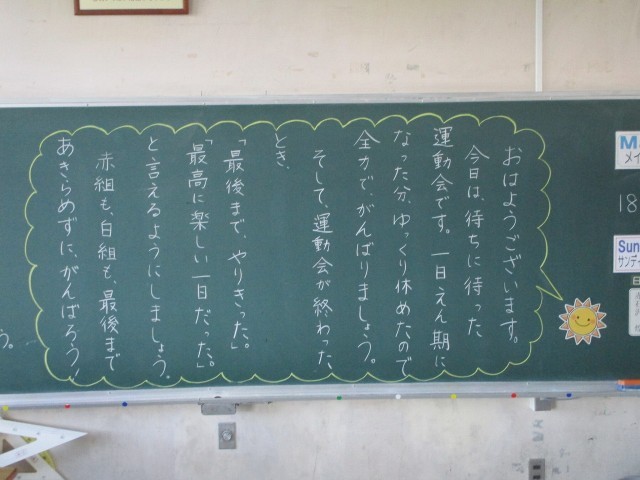 おはようございます。
今日は、待ちに待った
運動会です。一日えん期に
なった分、ゆっくり休めたので
全力で、がんばりましょう。
そして、運動会が終わった
とき、
「最後まで、やりきった。」
「最高に楽しい一日だった。」
と言えるようにしましょう。
赤組も、白組も、最後まで
あきらめずに、がんばろう！
う。
メイ
18
Sun
サンデ
日